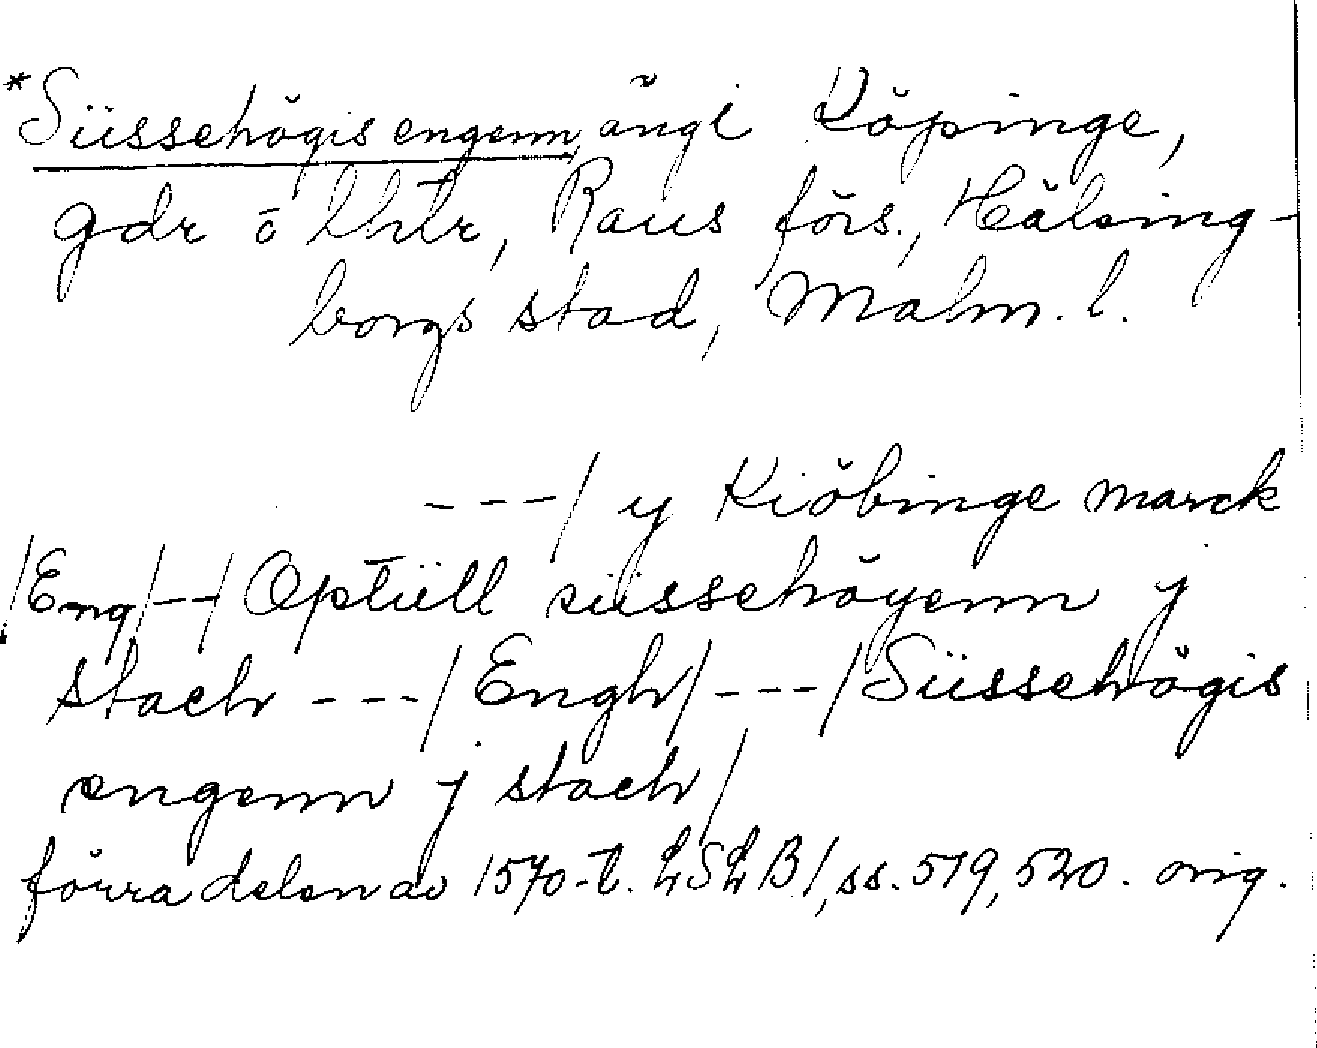 *Süssehögis engenn, ängl Köpinge,
gdr o lhtr, Raus förs., Hälsing-
borgs stad, Malm. l.
---/ y Kiöbinge marck
/Eng/--/Optüll süssehöyenn j
stach ---/Engh/---/Süssehögis
engenn j stach/
förra delen av 1570-t. LSLB1, ss. 519, 520. orig.